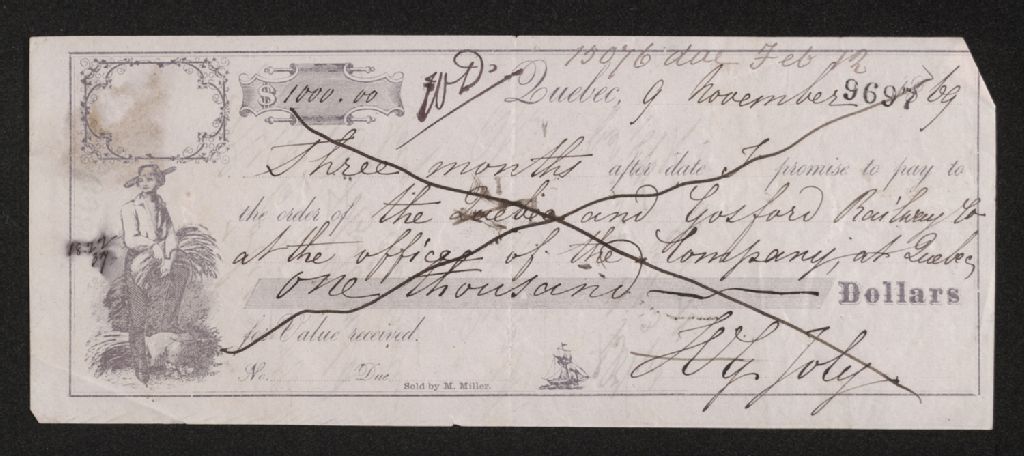 15976 due Feb 12
$ 1000.00
Quebec, 9 November 1869
9697
Three months after date I promise to pay to
the order of the Quebec and Gosford Railway Co
at the office of the Company, at Quebec,
one thousand Dollars
for Value received.
HG Joly
No. Due
Sold by M. Miller.